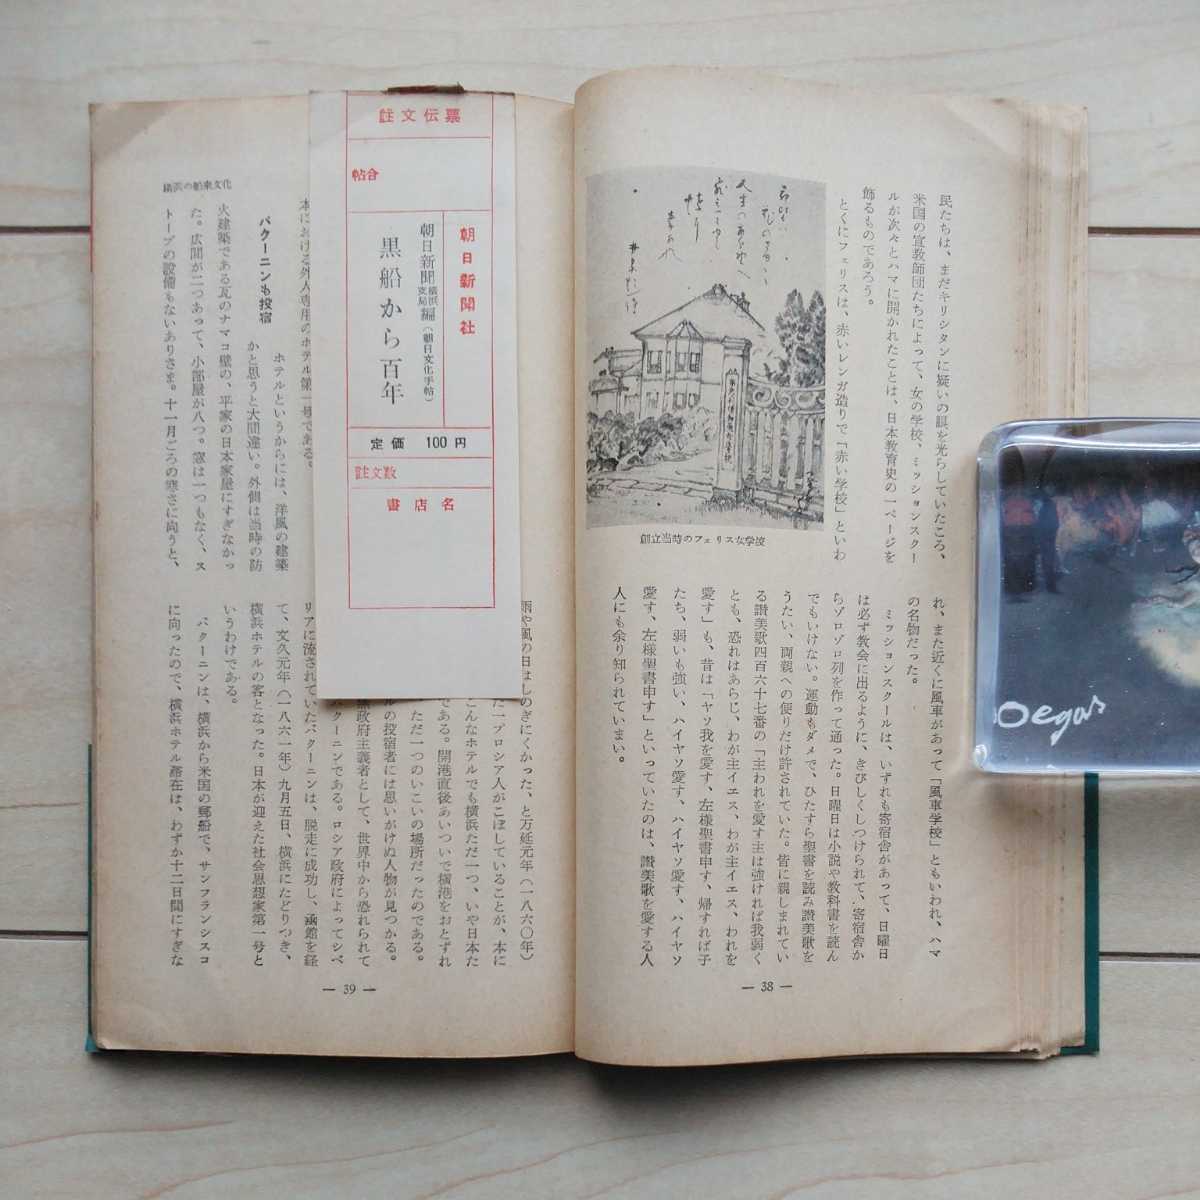 民たちは、まだキリシタンに疑いの眼を光らしていたころ、
米国の宣教師団たちによって、女の学校、ミッションスクー
ルが次々とハマに開かれたことは、日本教育史の一ページを
飾るものであろう。
とくにフェリスは、赤いレンガ造りで「赤い学校」といわ
創立当時のフェリス女学校
れ、また近くに風車があって「風車学校」ともいわれ、ハマ
の名物だった。
ミッションスクールは、いずれも寄宿舎があって、日曜日
は必ず教会に出るように、きびしくしつけられて、寄宿舎か
らゾロゾロ列を作って通った。日曜日は小説や教科書を読ん
でもいけない。運動もダメで、ひたすら聖書を読み讃美歌を
うたい、両親への便りだけ許されていた。皆に親しまれてい
る讃美歌四百六十七番の「主われを愛す主は強ければ我弱く
とも、恐れはあらじ、わが主イエス、わが主イエス、われを
愛す」も、昔は「ヤソ我を愛す、左様聖書申す、帰すれば子
たち、弱いも強い、ハイヤソ愛す、ハイヤソ愛す、ハイヤソ
愛す、左様聖書申す」といっていたのは、讃美歌を愛する人
人にも余り知られていまい。
— 38 —
註文伝票
帖合
朝日新聞社
朝日新聞横浜支局編(朝日文化手帖)
黒船から百年
定価 100円
註文数
書店名
本における外人専用のホテル第一号である。
バクーニンも投宿
ホテルというからには、洋風の建築
かと思うと大間違い。外側は当時の防
火建築である瓦のナマコ壁の、平家の日本家屋にすぎなかっ
た。広間が二つあって、小部屋が八つ。窓は一つもなく、ス
トーブの設備もないありさま。十一月ごろの寒さに向うと、
横浜の舶来文化
雨や風の日はしのぎにくかった、と万延元年(一八六〇年)
一プロシア人がこぼしていることが、本に
こんなホテルでも横浜ただ一つ、いや日本た
である。開港直後あいついで横港をおとずれ
ただ一つのいこいの場所だったのである。
ルの投宿者には思いがけぬ人物が見つかる。
政府主義者として、世界中から恐れられて
バクーニンである。ロシア政府によってシベ
リアに流されていたバクーニンは、脱走に成功し、函館を経
て、文久元年(一八六一年)九月五日、横浜にたどりつき、
横浜ホテルの客となった。日本が迎えた社会思想家第一号と
いうわけである。
バクーニンは、横浜から米国の郵船で、サンフランシスコ
に向ったので、横浜ホテル滞在は、わずか十二日間にすぎな
— 39 —
Degas